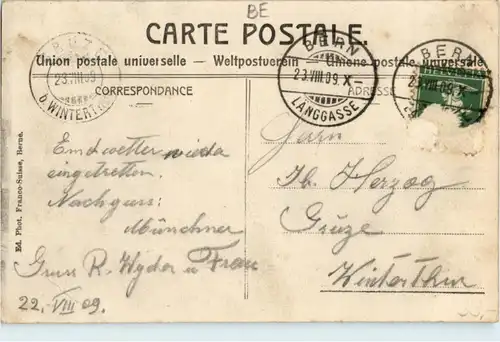 BE
CARTE POSTALE.
Union postale universelle — Weltpostverein — Unione postale universale
CORRESPONDANCE
ADRESSE
GRÜZE
23.VIII.09
b. WINTERTHUR
BERN
23.VIII.09.X–
LÄNGGASSE
BERN
23.VIII.09.X–
wieder
eingetroffen.
Nachgruss:
Münchner
Gruss R. Wyder u Frau
22. VIII 09.
Herzog
Grüze
Winterthur
Ed. Phot. Franco-Suisse, Berne.